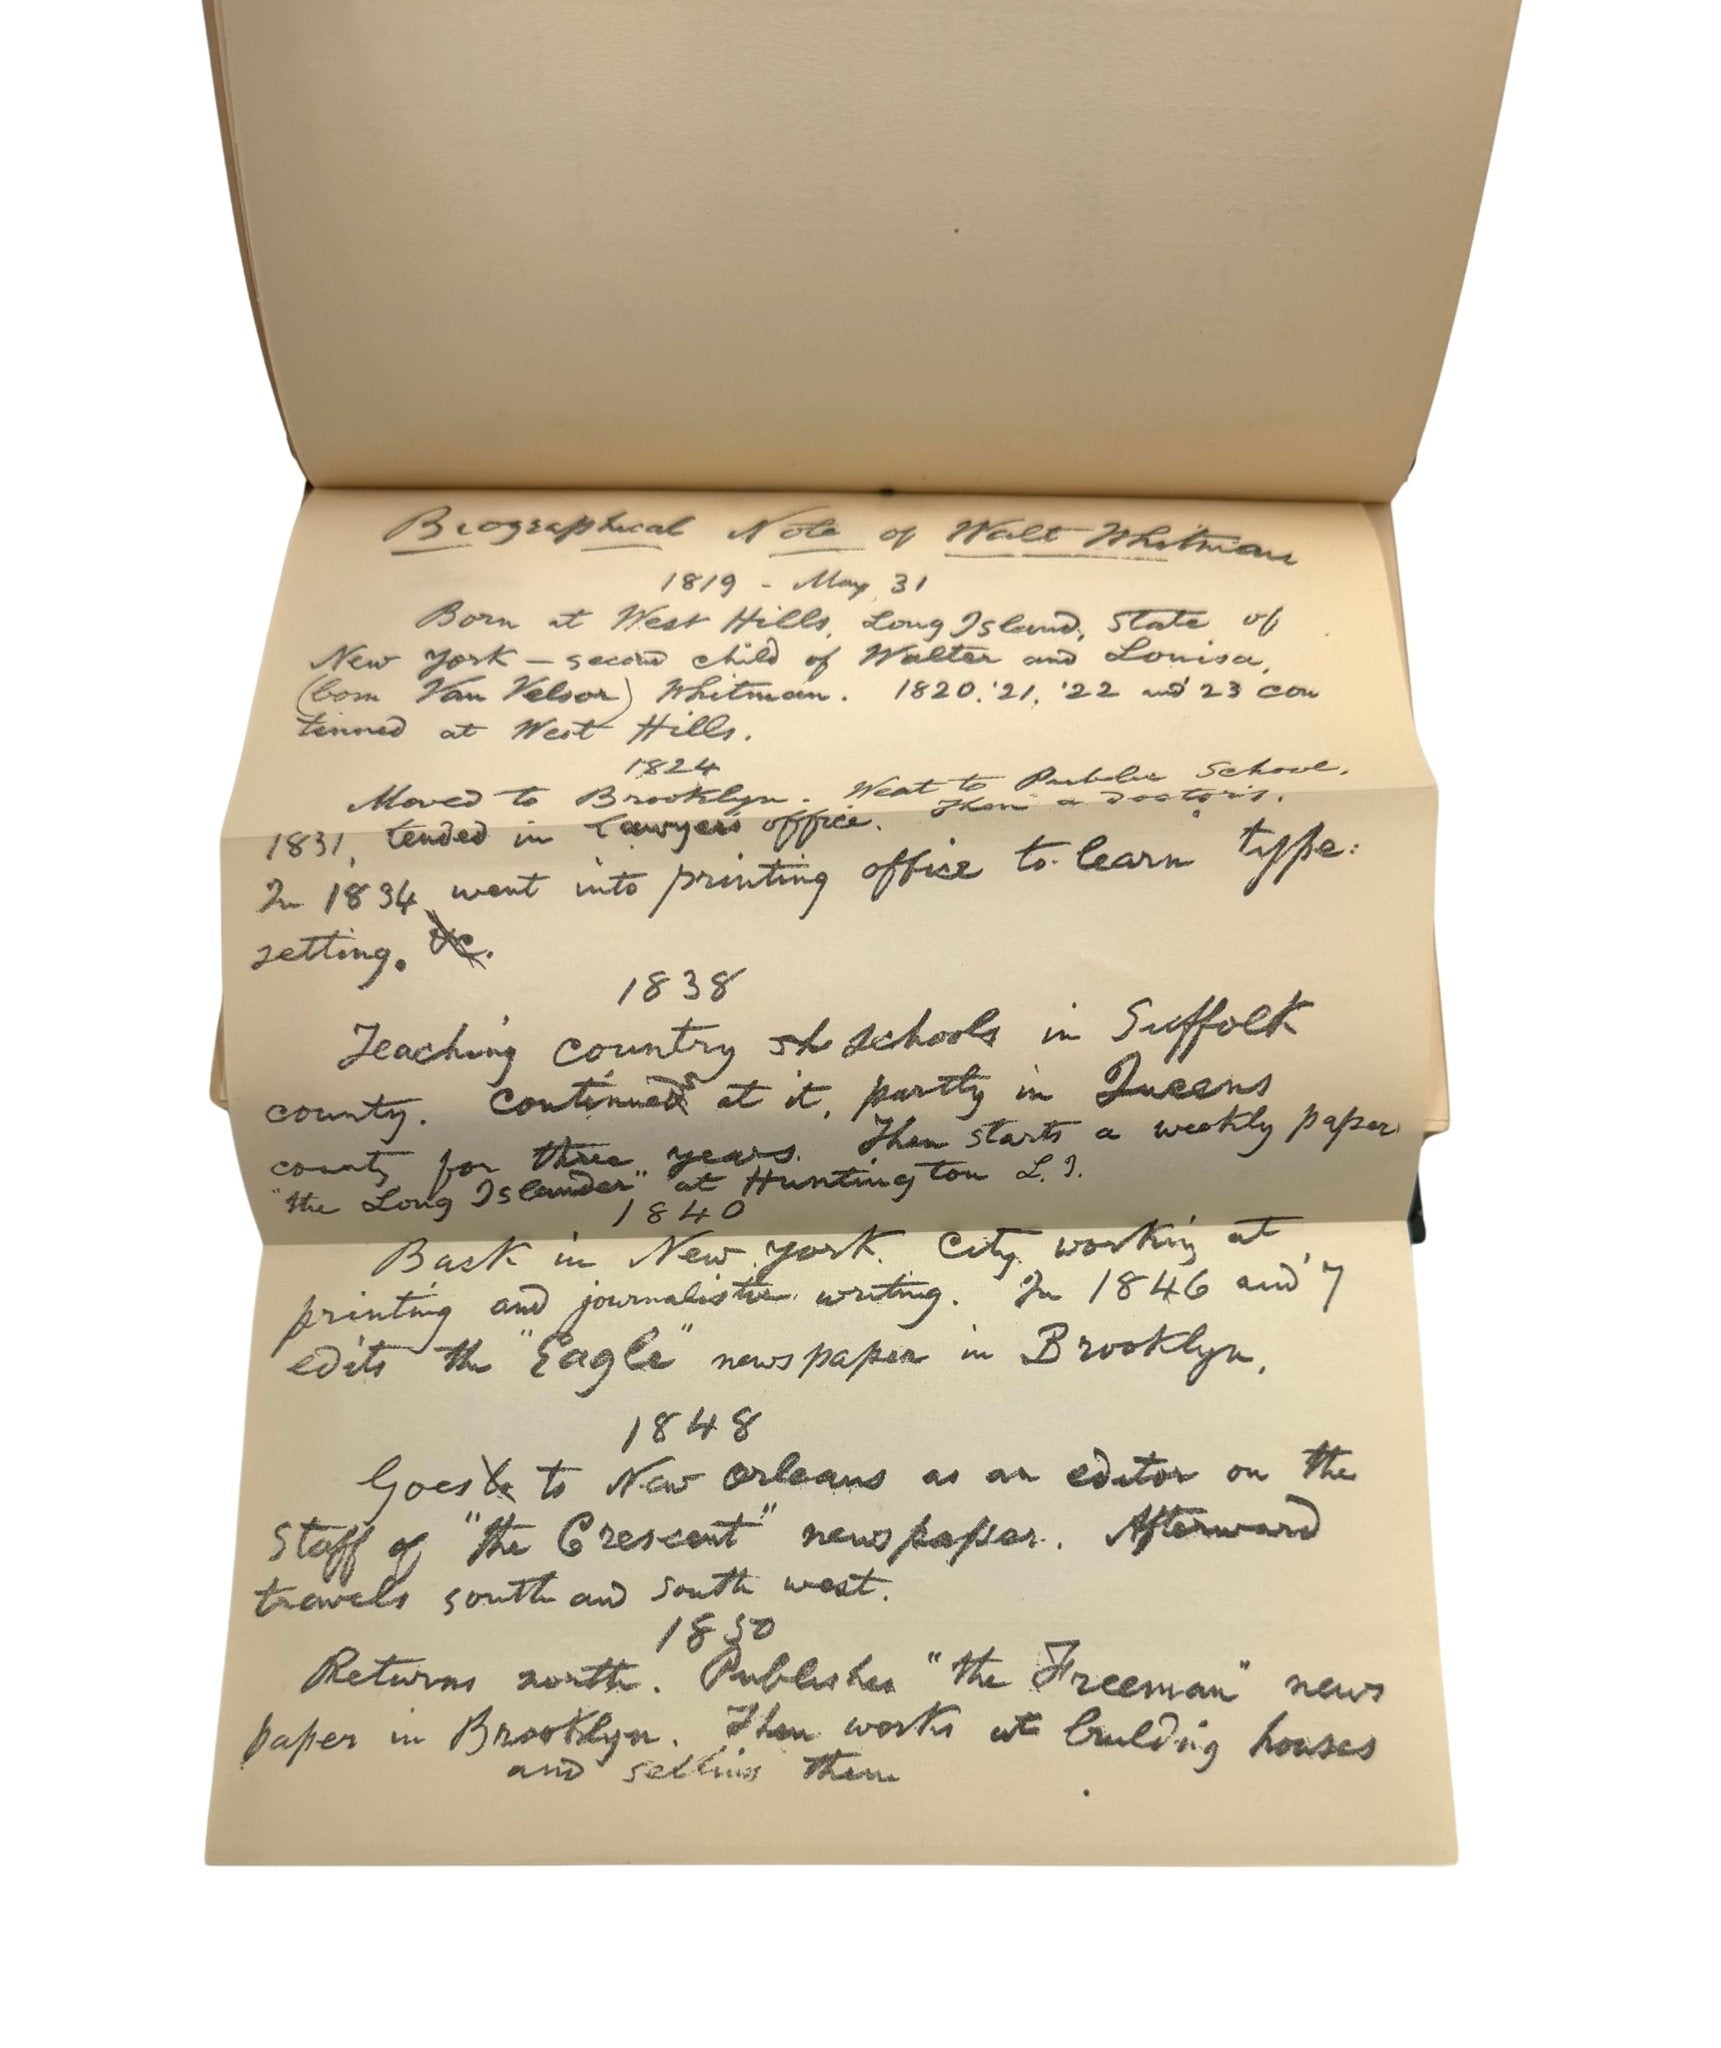 Biographical Note of Walt Whitman
1819 - May 31
Born at West Hills, Long Island, State of
New York — second child of Walter and Louisa,
(born Van Velsor) Whitman. 1820, '21, '22 and '23 con
tinued at West Hills.
1824
Moved to Brooklyn. Went to Public School.
1831, tended in lawyers office. Then a doctor's.
In 1834 went into printing office to learn type:
setting. &c.
1838
Teaching country sh schools in Suffolk
county. Continued at it, partly in Queens
county for three years. Then starts a weekly paper
"the Long Islander" at Huntington L. I.
1840
Back in New York City working at
printing and journalistic writing. In 1846 and '7
edits the "Eagle" newspaper in Brooklyn,
1848
Goes to New Orleans as an editor on the
staff of "the Crescent" newspaper. Afterward
travels south and south west.
1850
Returns north. Publishes "the Freeman" news
paper in Brooklyn. Then works at building houses
and selling them